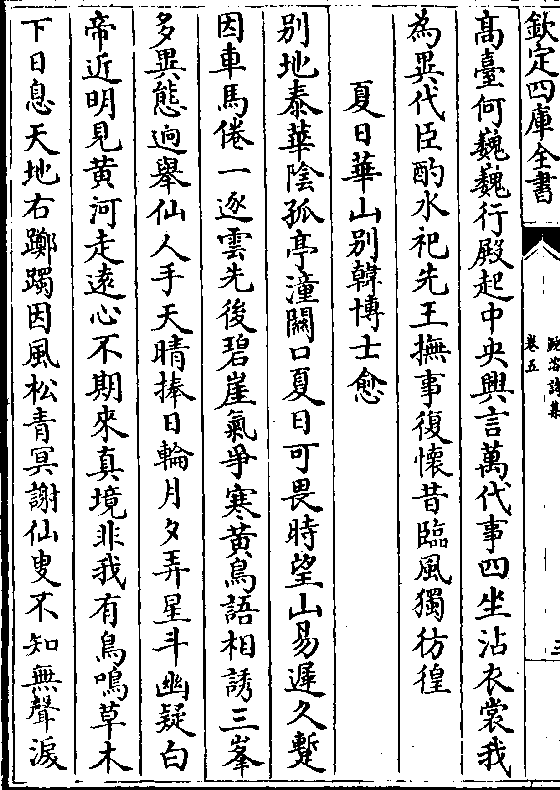 欽定四庫全書
卷五
三
髙臺何巍巍行殿起中央興言萬代事四坐沾衣裳我
為異代臣酌水祀先王撫事復懷昔臨風獨彷徨
夏日華山别韓博士愈
别地泰華陰孤亭潼關口夏日可畏時望山易遲久蹔
因車馬倦一逐雲先後碧崖氣爭寒黄鳥語相誘三峯
多異態迥舉仙人手天晴捧日輪月夕弄星斗幽疑白
帝近明見黄河走遠心不期來真境非我有鳥鳴草木
下日息天地右躑躅因風松青冥謝仙叟不知無聲淚